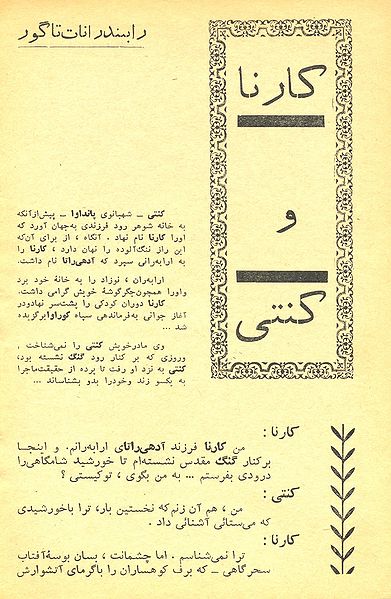 رابیندرانات تاگور
کارنا
و
کنتی
کنتی ـ شهبانوی پانداوا ـ پیش‌ازآنکه
به خانه شوهر رود فرزندی به‌جهان آورد که
اورا کارنا نام نهاد . آنگاه ، از برای آن‌که
این راز ننگ‌آلوده را نهان دارد ، کارنا را
به ارابه‌رانی سپرد که آدهی‌راتا نام داشت.
ارابه‌ران ، نوزاد را به خانهٔ خود برد
واورا همچون‌جگرگوشهٔ خویش گرامی داشت.
کارنا دوران کودکی را پشت‌سر نهادودر
آغاز جوانی به‌فرماندهی سپاه کوراوابرگزیده
شد ...
وی مادرخویش کنتی را نمی‌شناخت ,
وروزی که بر کنار رود گنگ نشسته بود،
کنتی به نزد او رفت تا پرده از حقیقت‌ماجرا
به یکسو زند وخودرا بدو بشناساند ...
کارنا :
من کارنا فرزند آدهی‌راتای ارابه‌رانم. و اینجا
برکنار گنگ مقدس نشسته‌ام تا خورشید شامگاهی‌را
درودی بفرستم ... به من بگوی ، توکیستی ؟
کنتی :
من ، هم آن زنم‌که نخستین بار، ترا باخورشیدی
که می‌ستائی آشنائی داد .
کارنا :
ترا نمی‌شناسم . اما چشمانت ، بسان بوسهٔ‌آفتاب
سحرگاهی ـ که برف کوهساران را باگرمای آتشوارش